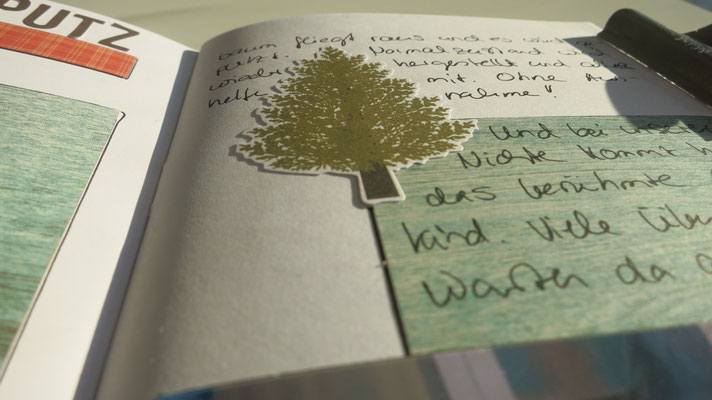 PUTZ
baum fliegt raus und es wird
putzt. Normalzustand wird
wieder hergestellt und alle
helfen mit. Ohne Aus-
nahme!
Und bei unserer
Nichte kommt
das berühmte
kind. Viele Über
warten da